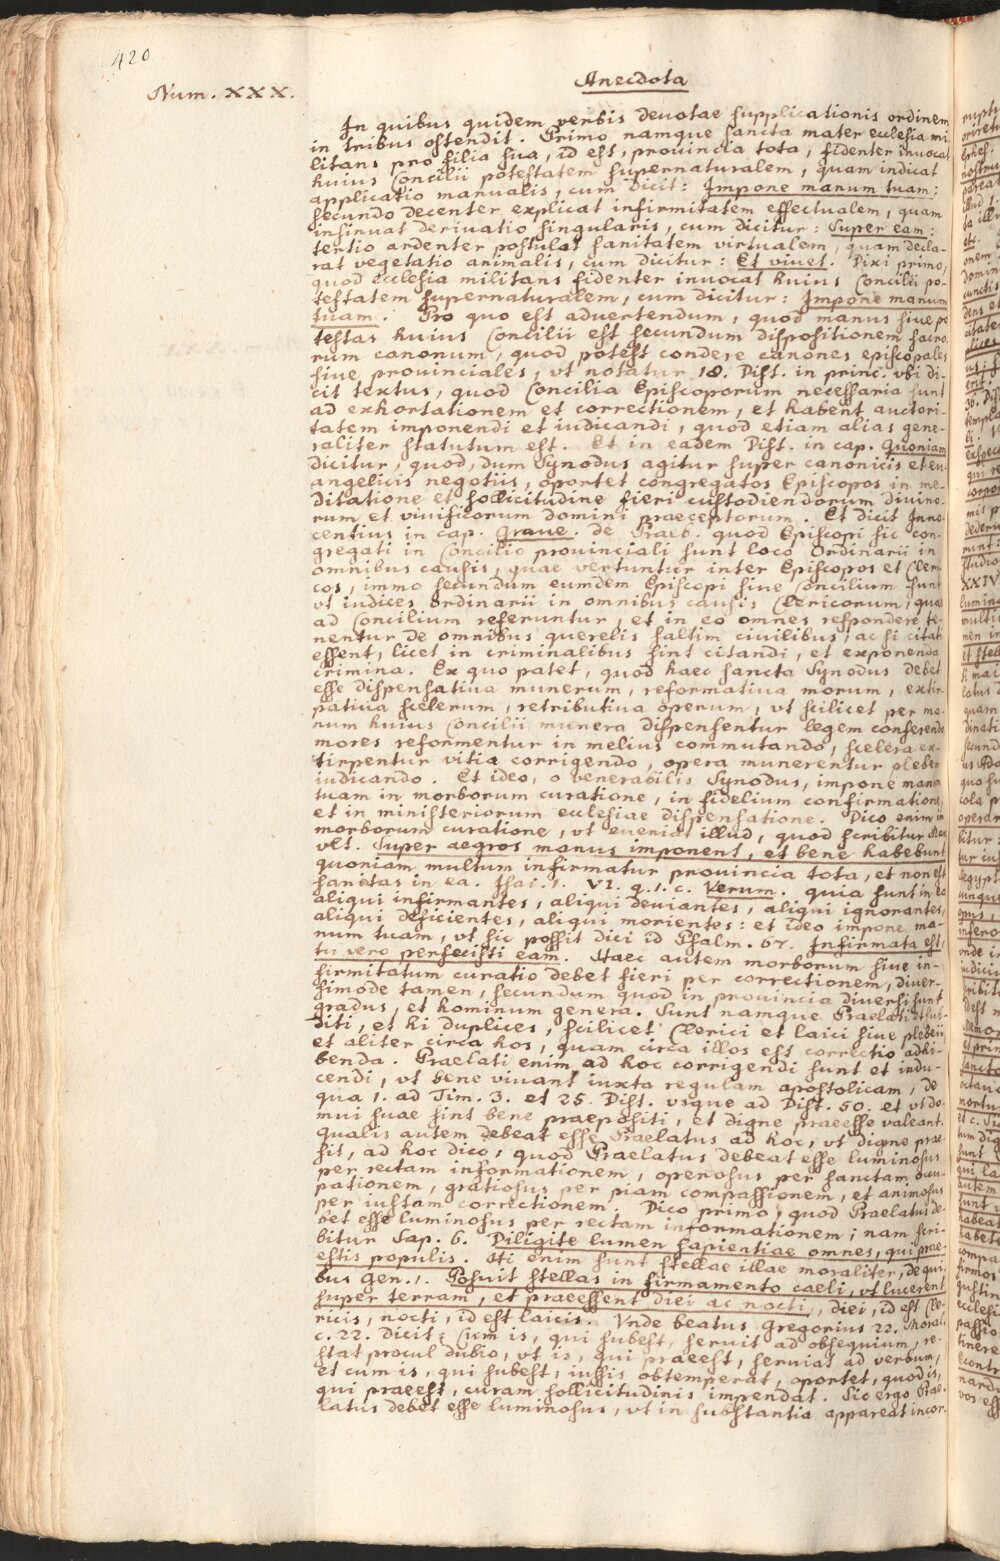 420
Num. XXX.
Anecdota
In quibus quidem verbis deuotae supplicationis ordinem
in tribus ostendit. Primo namque sancta mater ecclesia mi
litans pro filia sua, id est, prouincia tota, fidenter inuocat
huius Concilii potestatem supernaturalem, quam indicat
applicatio manualis, cum dicit: Impone manum tuam:
secundo decenter explicat infirmitatem effectualem, quam
insinuat deriuatio singularis, cum dicitur: Super eam:
tertio ardenter postulat sanitatem virtualem, quam decla-
rat vegetatio animalis, cum dicitur: Et viuet. Dixi primo,
quod ecclesia militans fidenter inuocat huius Concilii po-
testatem supernaturalem, cum dicitur: Impone manum
tuam. Pro quo est aduertendum, quod manus siue po
testas huius Concilii est secundum dispositionem sacro
rum canonum, quod potest condere canones episcopales
siue prouinciales, vt notatur 18. Dist. in princ. vbi di-
cit textus, quod Concilia Episcoporum necessaria sunt
ad exhortationem et correctionem, et habent auctori-
tatem imponendi et iudicandi, quod etiam alias gene-
raliter statutum est. Et in eadem Dist. in cap. Quoniam
dicitur, quod, dum Synodus agitur super canonicis et eu-
angelicis negotiis, oportet congregatos Episcopos in me-
ditatione et sollicitudine fieri custodiendorum diuino-
rum et viuificorum domini praeceptorum. Et dicit Inno-
centius in cap. Graue. de Praeb. quod Episcopi sic con-
gregati in Concilio prouinciali sunt loco Ordinarii in
omnibus causis, quae vertuntur inter Episcopos et Cleri
cos, immo secundum eumdem Episcopi siue Concilium sunt
vt iudices ordinarii in omnibus causis Clericorum, quae
ad Concilium referuntur, et in eo omnes respondere te-
nentur de omnibus querelis saltim ciuilibus, ac si citati
essent, licet in criminalibus sint citandi, et exponenda
crimina. Ex quo patet, quod haec sancta Synodus debet
esse dispensatiua munerum, reformatiua morum, extir
patiua scelerum, retributiua operum, vt scilicet per ma-
num huius Concilii munera dispensentur legem conserendo
mores reformentur in melius commutando, scelera ex-
tirpentur vitia corrigendo, opera munerentur plebem
iudicando. Et ideo, o venerabilis Synodus, impone manum
tuam in morborum curatione, in fidelium confirmatione,
et in ministeriorum ecclesiae dispensatione. Dico enim in
morborum curatione, vt eueniat illud, quod scribitur Mar.
vlt. Super aegros manus imponent, et bene habebunt
quoniam multum infirmatur prouincia tota, et non est
sanitas in ea. Isai. 1. VI. q. 1. c. Verum. quia sunt in ea
aliqui infirmantes, aliqui deuiantes, aliqui ignorantes,
aliqui deficientes, aliqui morientes: et ideo impone ma-
num tuam, vt sic possit dici id Psalm. 67. Infirmata est,
tu vero perfecisti eam. Haec autem morborum siue in-
firmitatum curatio debet fieri per correctionem, diuer-
simode tamen, secundum quod in prouincia diuersi sunt
gradus, et hominum genera. Sunt namque Praelati et sub-
diti, et hi duplices, scilicet Clerici et laici siue plebeii,
et aliter circa hos, quam circa illos est correctio adhi-
benda. Praelati enim ad hoc corrigendi sunt et indu-
cendi, vt bene viuant iuxta regulam apostolicam, de
qua 1. ad Tim. 3. et 25. Dist. vsque ad Dist. 50. et vt do-
mui suae sint bene praepositi, et digne praeesse valeant.
Qualis autem debeat esse Praelatus ad hoc, vt digne prae-
sit, ad hoc dico, quod Praelatus debeat esse luminosus
per rectam informationem, operosus per sanctam occu-
pationem, gratiosus per piam compassionem, et animosus
per iustam correctionem. Dico primo, quod Praelatus de-
bet esse luminosus per rectam informationem; nam scri-
bitur Sap. 6. Diligite lumen sapientiae omnes, qui prae-
estis populis. Hi enim sunt stellae illae moraliter, de qui-
bus Gen. 1. Posuit stellas in firmamento caeli, vt lucerent
super terram, et praeessent diei ac nocti, diei, id est Cle-
ricis, nocti, id est laicis. Vnde beatus Gregorius 22. Moral.
c. 22. dicit: Cum is, qui subest, seruit ad obsequium, re-
stat procul dubio, vt is, qui praeest, seruiat ad verbum,
et cum is, qui subest, iussis obtemperat, oportet, quod is,
qui praeest, curam sollicitudinis impendat. Sic ergo Prae-
latus debet esse luminosus, vt in substantia appareat incor-